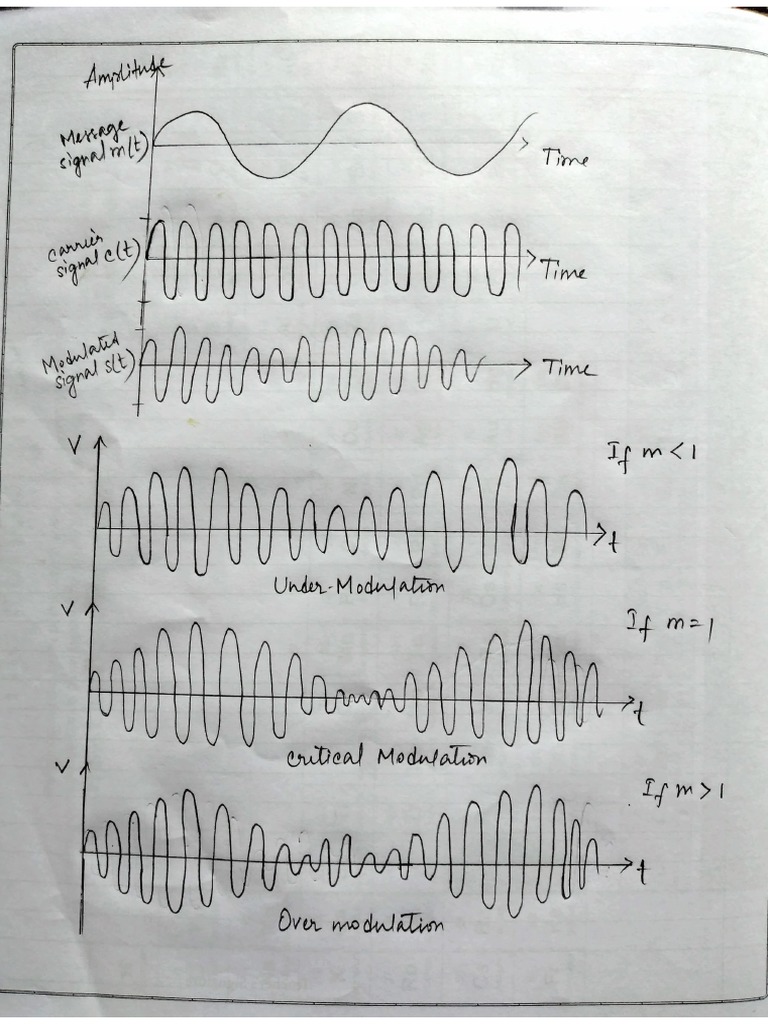 Amplitude
Message
signal m(t)
Time
Carrier
signal c(t)
Time
Modulated
signal s(t)
Time
V
If m < 1
t
Under-Modulation
V
If m = 1
t
Critical Modulation
V
If m > 1
t
Over modulation